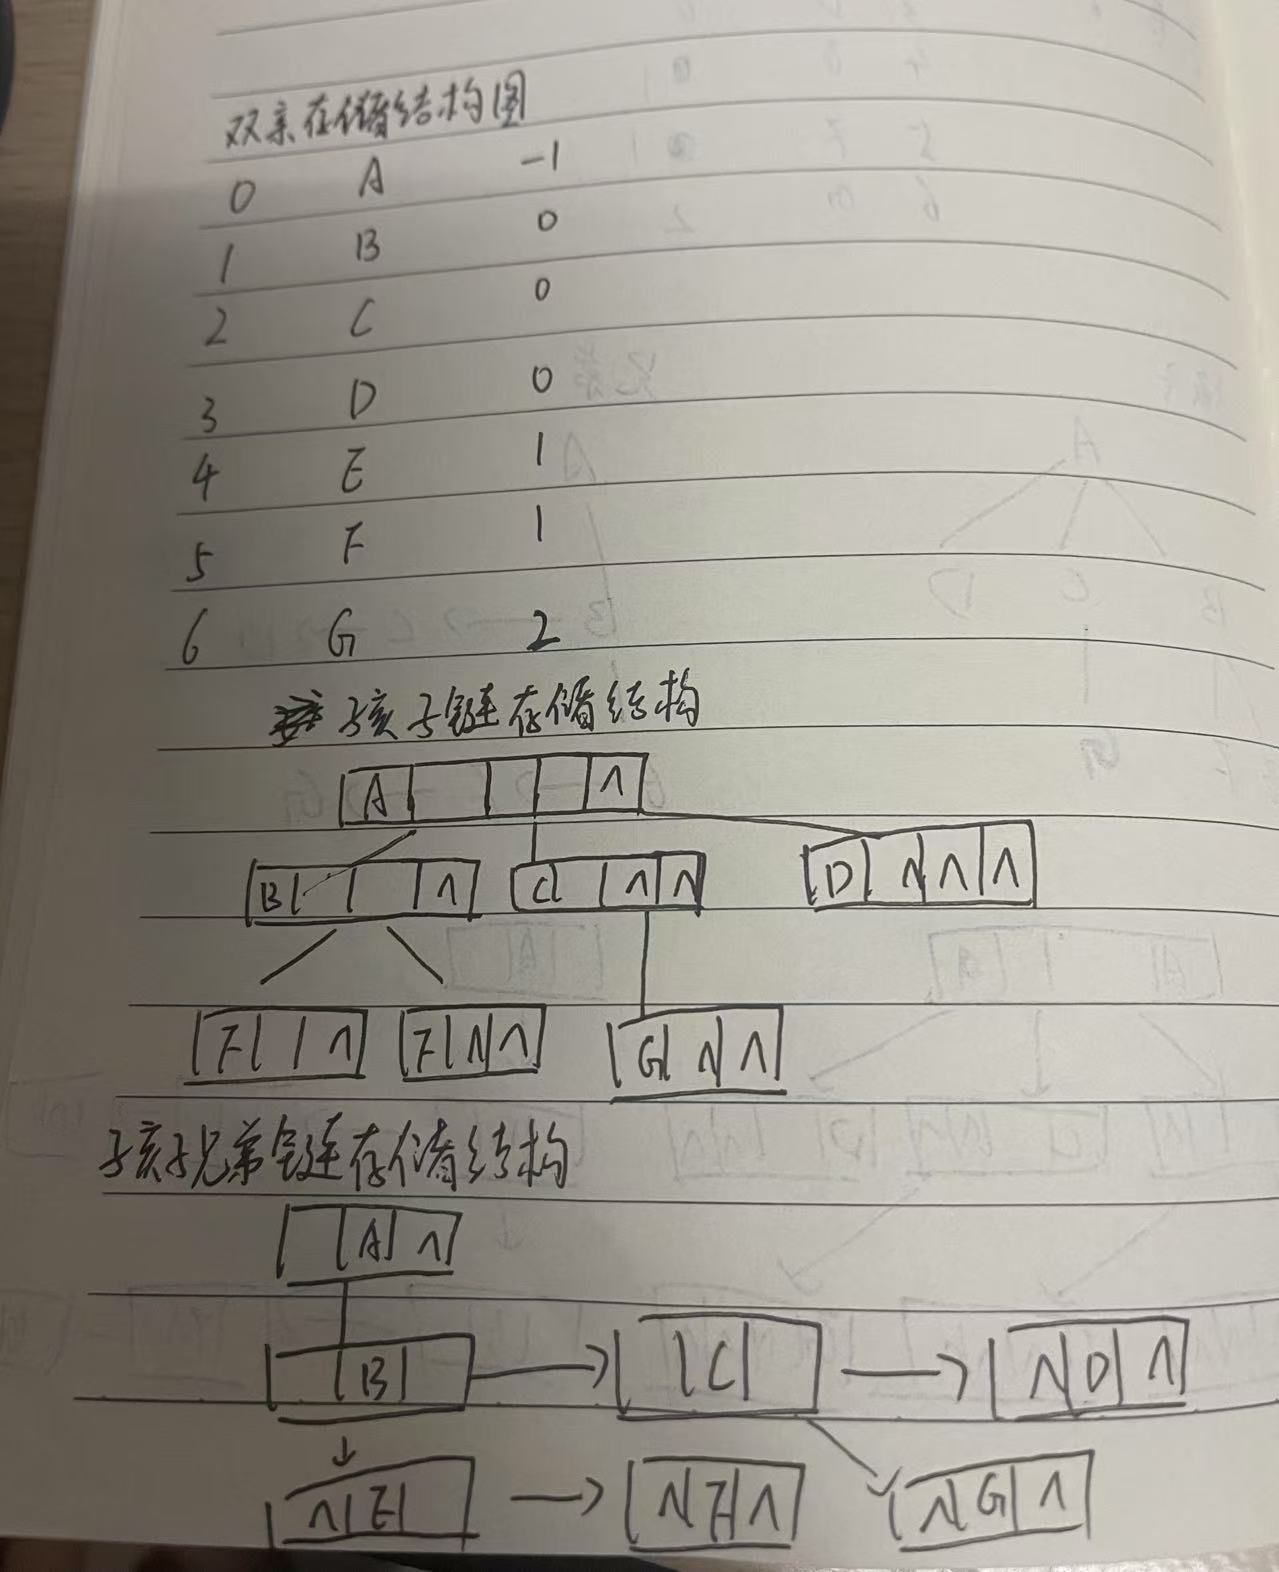 双亲存储结构图
0 A -1
1 B 0
2 C 0
3 D 0
4 E 1
5 F 1
6 G 2
孩子链存储结构
A ∧
B ∧ C ∧ ∧ D ∧ ∧ ∧
F ∧ F ∧ ∧ G ∧ ∧
孩子兄弟链存储结构
A ∧
B C ∧ D ∧
∧ E ∧ F ∧ ∧ G ∧